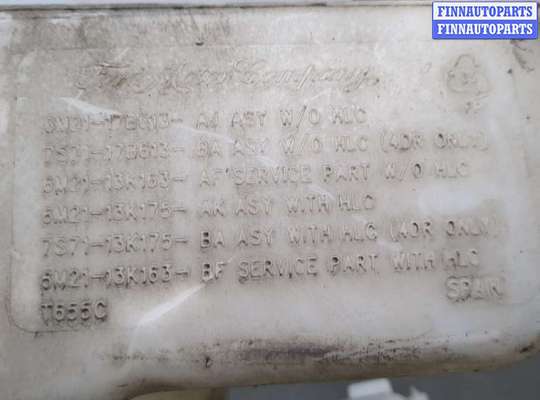 FINNAUTOPARTS
FINNAUTOPARTS
Ford Motor Company
6M21-17B613- AJ ASY W/O HLC
7S71-17B613- BA ASY W/O HLC (4DR ONLY)
6M21-13K163- AF SERVICE PART W/O HLC
6M21-13K175- AK ASY WITH HLC
7S71-13K175- BA ASY WITH HLC (4DR ONLY)
6M21-13K163- BF SERVICE PART WITH HLC
T655C
SPAIN